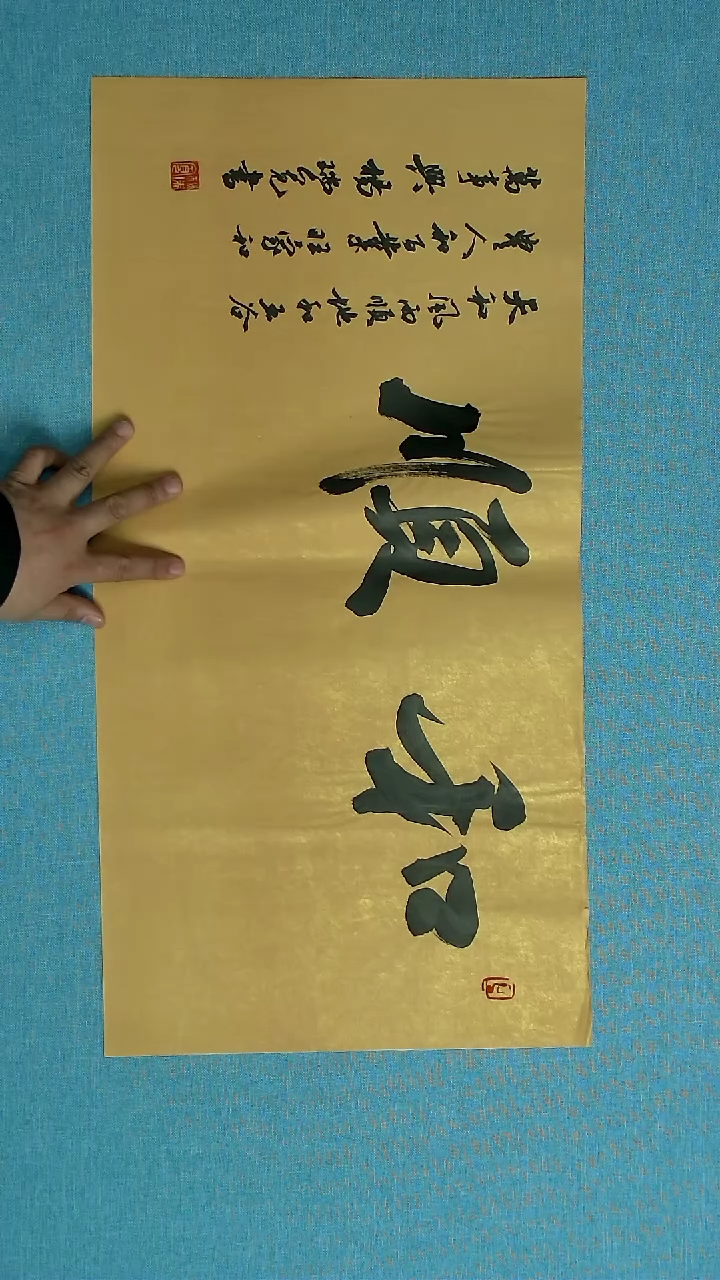 和順
天和風雨順地和五谷
豐人和百業旺家和
萬事興 楊 書